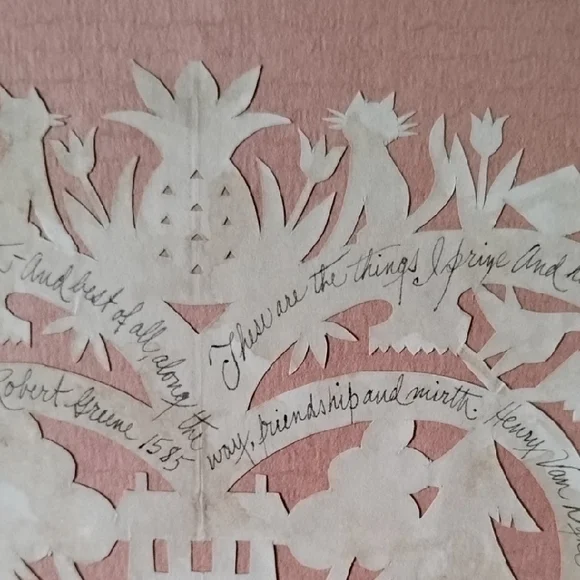 These are the things I prize And
And best of all, along the
way, friendship and mirth. Henry Van
Robert Greene 1585